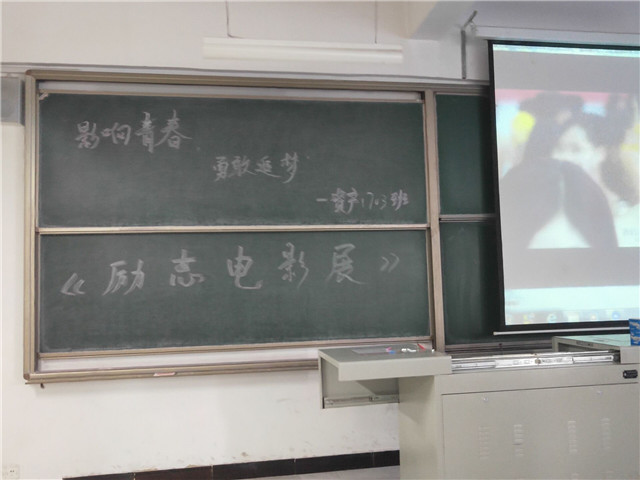 影响青春
勇敢追梦
—资产1703班
《励志电影展》